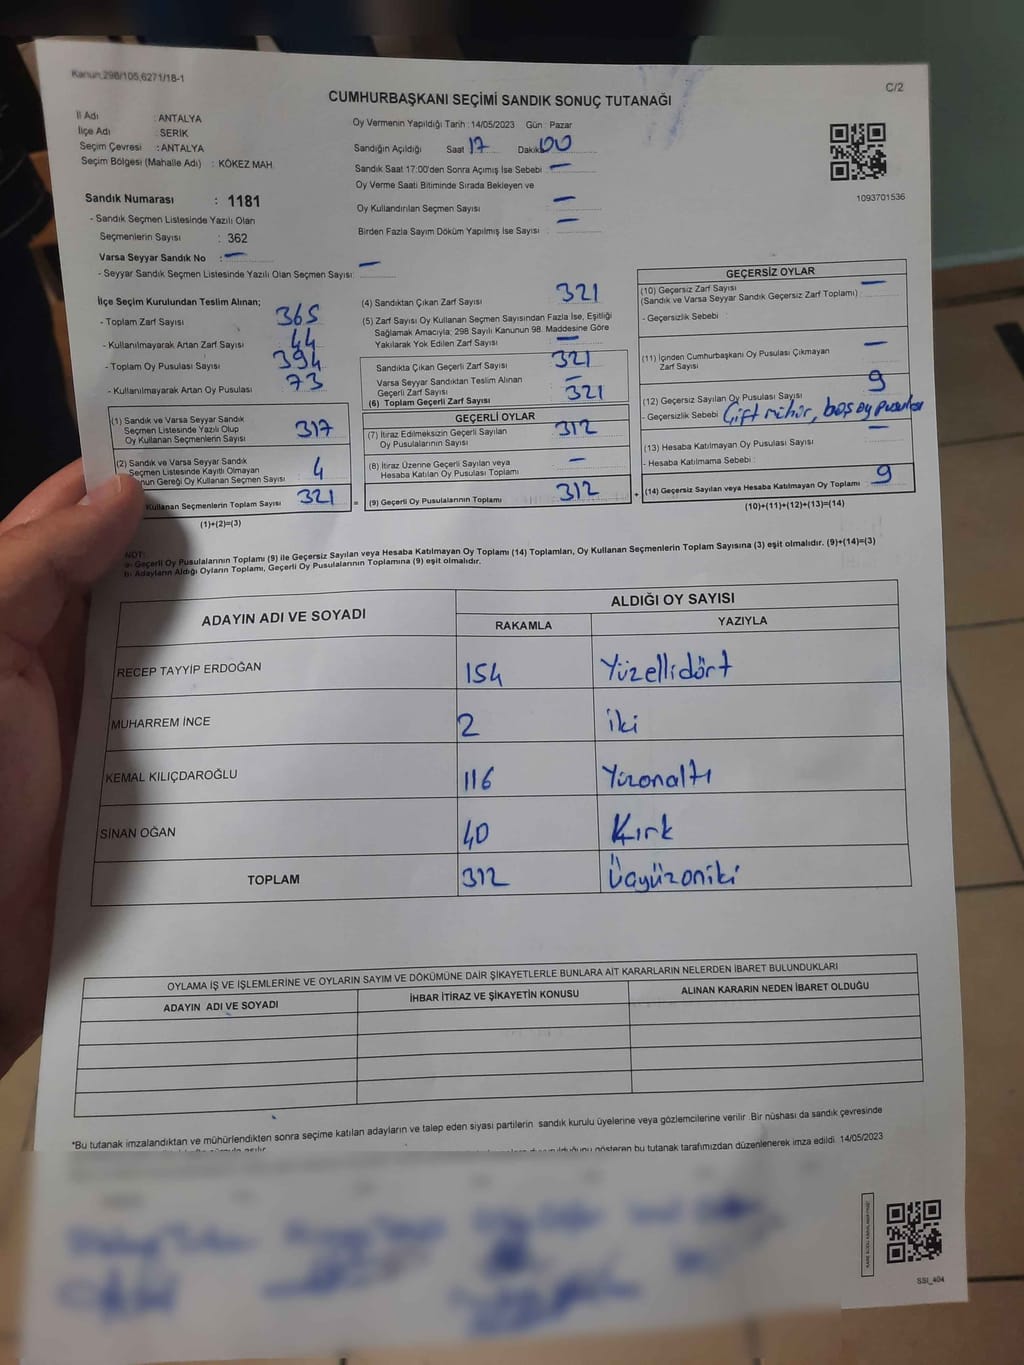 Kanun,298/105,6271/18-1
C/2
CUMHURBAŞKANI SEÇİMİ SANDIK SONUÇ TUTANAĞI
İl Adı : ANTALYA
İlçe Adı : SERİK
Seçim Çevresi : ANTALYA
Seçim Bölgesi (Mahalle Adı) : KÖKEZ MAH.
Sandık Numarası : 1181
- Sandık Seçmen Listesinde Yazılı Olan
Seçmenlerin Sayısı : 362
Varsa Seyyar Sandık No : —
- Seyyar Sandık Seçmen Listesinde Yazılı Olan Seçmen Sayısı: —
Oy Vermenin Yapıldığı Tarih : 14/05/2023 Gün : Pazar
Sandığın Açıldığı Saat 17 Dakika 00
Sandık Saat 17:00'den Sonra Açımış İse Sebebi : —
Oy Verme Saati Bitiminde Sırada Bekleyen ve
Oy Kullandırılan Seçmen Sayısı : —
Birden Fazla Sayım Döküm Yapılmış İse Sayısı : —
1093701536
İlçe Seçim Kurulundan Teslim Alınan;
- Toplam Zarf Sayısı 365
- Kullanılmayarak Artan Zarf Sayısı 44
- Toplam Oy Pusulası Sayısı 394
- Kullanılmayarak Artan Oy Pusulası 73
(1) Sandık ve Varsa Seyyar Sandık
Seçmen Listesinde Yazılı Olup
Oy Kullanan Seçmenlerin Sayısı 317
(2) Sandık ve Varsa Seyyar Sandık
Seçmen Listesinde Kayıtlı Olmayan
nun Gereği Oy Kullanan Seçmen Sayısı 4
Kullanan Seçmenlerin Toplam Sayısı 321 =
(1)+(2)=(3)
(4) Sandıktan Çıkan Zarf Sayısı 321
(5) Zarf Sayısı Oy Kullanan Seçmen Sayısından Fazla İse, Eşitliği
Sağlamak Amacıyla; 298 Sayılı Kanunun 98. Maddesine Göre
Yakılarak Yok Edilen Zarf Sayısı —
Sandıkta Çıkan Geçerli Zarf Sayısı 321
Varsa Seyyar Sandıktan Teslim Alınan
Geçerli Zarf Sayısı —
(6) Toplam Geçerli Zarf Sayısı 321
GEÇERLİ OYLAR
(7) İtiraz Edilmeksizin Geçerli Sayılan
Oy Pusulalarının Sayısı 312
(8) İtiraz Üzerine Geçerli Sayılan veya
Hesaba Katılan Oy Pusulası Toplamı —
(9) Geçerli Oy Pusulalarının Toplamı 312 +
GEÇERSİZ OYLAR
(10) Geçersiz Zarf Sayısı —
(Sandık ve Varsa Seyyar Sandık Geçersiz Zarf Toplamı) :
- Geçersizlik Sebebi :
(11) İçinden Cumhurbaşkanı Oy Pusulası Çıkmayan
Zarf Sayısı —
(12) Geçersiz Sayılan Oy Pusulası Sayısı 9
- Geçersizlik Sebebi Çift mühür, boş oy pusulası
(13) Hesaba Katılmayan Oy Pusulası Sayısı —
- Hesaba Katılmama Sebebi :
(14) Geçersiz Sayılan veya Hesaba Katılmayan Oy Toplamı 9
(10)+(11)+(12)+(13)=(14)
NOT:
a- Geçerli Oy Pusulalarının Toplamı (9) ile Geçersiz Sayılan veya Hesaba Katılmayan Oy Toplamı (14) Toplamları, Oy Kullanan Seçmenlerin Toplam Sayısına (3) eşit olmalıdır. (9)+(14)=(3)
b- Adayların Aldığı Oyların Toplamı, Geçerli Oy Pusulalarının Toplamına (9) eşit olmalıdır.
ADAYIN ADI VE SOYADI
ALDIĞI OY SAYISI
RAKAMLA YAZIYLA
RECEP TAYYİP ERDOĞAN 154 Yüzellidört
MUHARREM İNCE 2 iki
KEMAL KILIÇDAROĞLU 116 Yüzonaltı
SİNAN OĞAN 40 Kırk
TOPLAM 312 Üçyüzoniki
OYLAMA İŞ VE İŞLEMLERİNE VE OYLARIN SAYIM VE DÖKÜMÜNE DAİR ŞİKAYETLERLE BUNLARA AİT KARARLARIN NELERDEN İBARET BULUNDUKLARI
ADAYIN ADI VE SOYADI İHBAR İTİRAZ VE ŞİKAYETİN KONUSU ALINAN KARARIN NEDEN İBARET OLDUĞU
*Bu tutanak imzalandıktan ve mühürlendikten sonra seçime katılan adayların ve talep eden siyasi partilerin sandık kurulu üyelerine veya gözlemcilerine verilir .Bir nüshası da sandık çevresinde
gösteren bu tutanak tarafımızdan düzenlenerek imza edildi. 14/05/2023
SSI_404